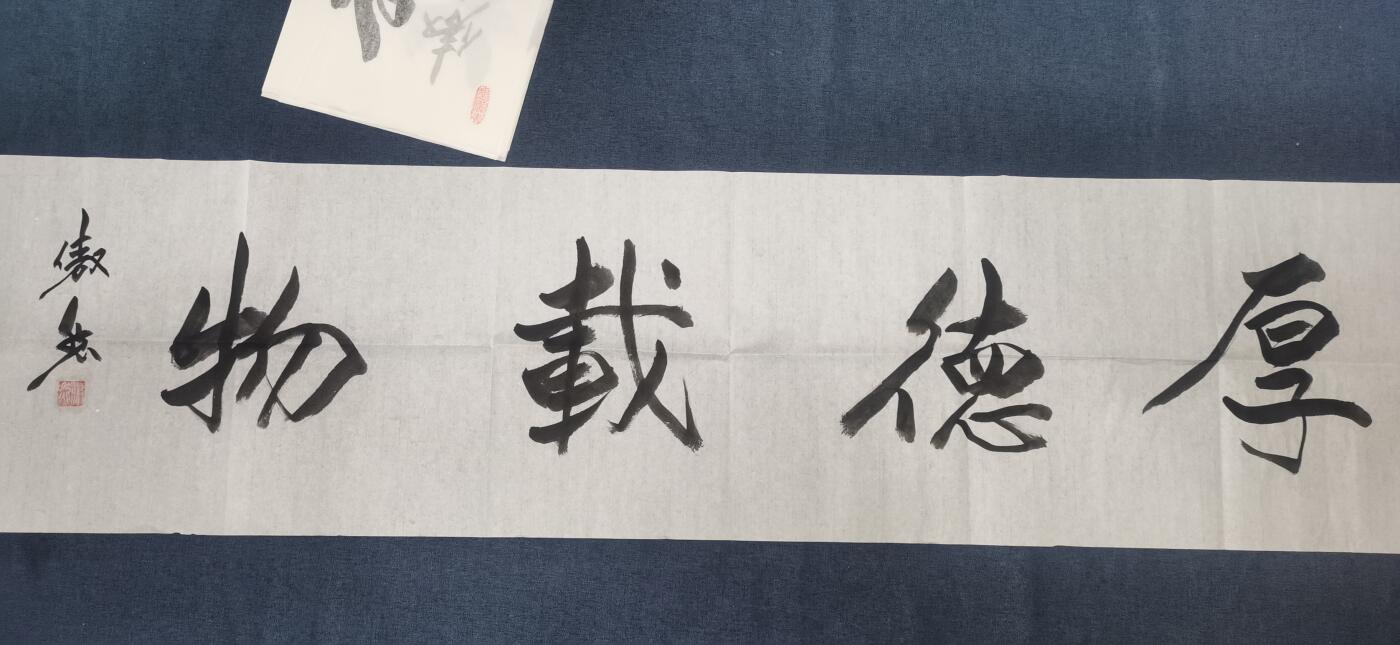 厚德載物
傲